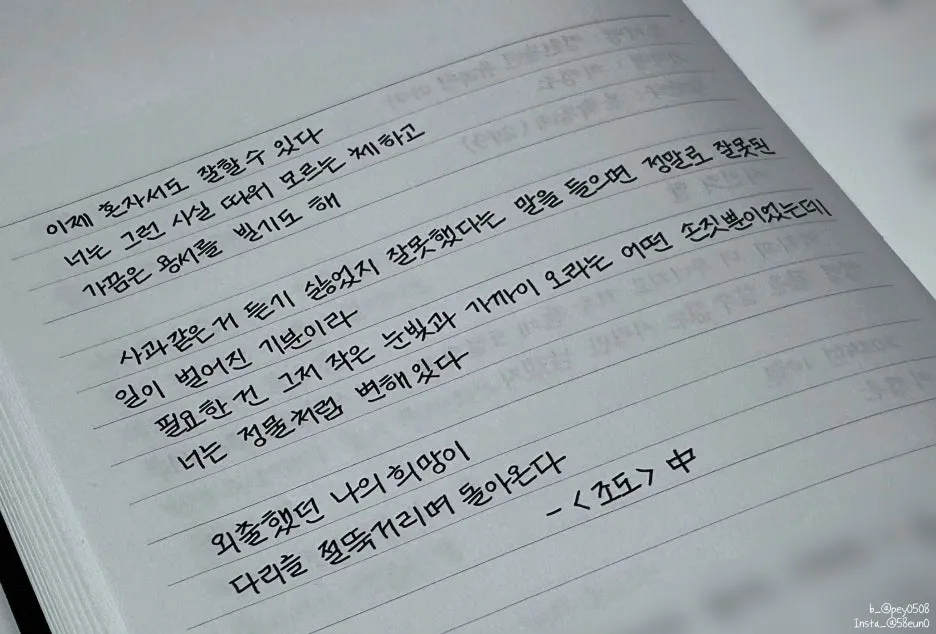 이제 혼자서도 잘할 수 있다
너는 그런 사실 따위 모르는 체 하고
가끔은 용서를 빌기도 해
사과같은거 듣기 싫었지 잘못했다는 말을 들으면 정말로 잘못된
일이 벌어진 기분이라
필요한건 그저 작은 눈빛과 가까이 오라는 어떤 손짓뿐이었는데
너는 정물처럼 변해있다
외출했던 나의 희망이
다리를 절뚝거리며 돌아온다
- <조도> 中
b_@pey0508
Insta_@58eun0